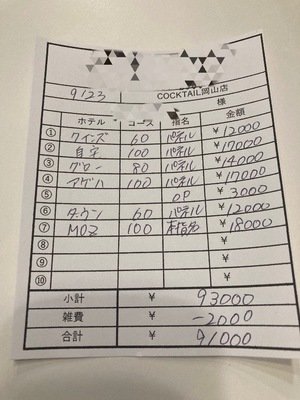 9/23 COCKTAIL岡山店
様
ホテル コース 指名 金額
① クインズ 60 パネル ¥12000
② 自宅 100 パネル ¥17000
③ グロー 80 パネル ¥14000
④ アゲハ 100 パネル ¥17000
⑤ OP ¥3000
⑥ タウン 60 パネル ¥12000
⑦ MOZ 100 本指名 ¥18000
⑧ ¥
⑨ ¥
⑩ ¥
小計 ¥ 93000
雑費 ¥ -2000
合計 ¥ 91000